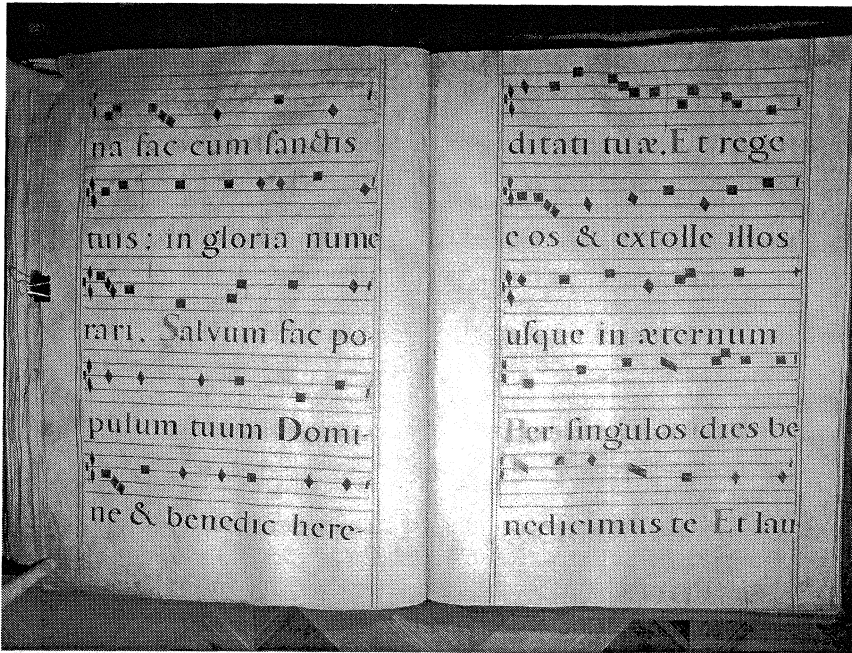 na fac cum ſanctis
tuis: in gloria nume
rari. Salvum fac po-
pulum tuum Domi-
ne & benedic here-
ditati tuæ. Et rege
e os & extolle illos
uſque in æternum
Per ſingulos dies be
nedicimus te Et lau